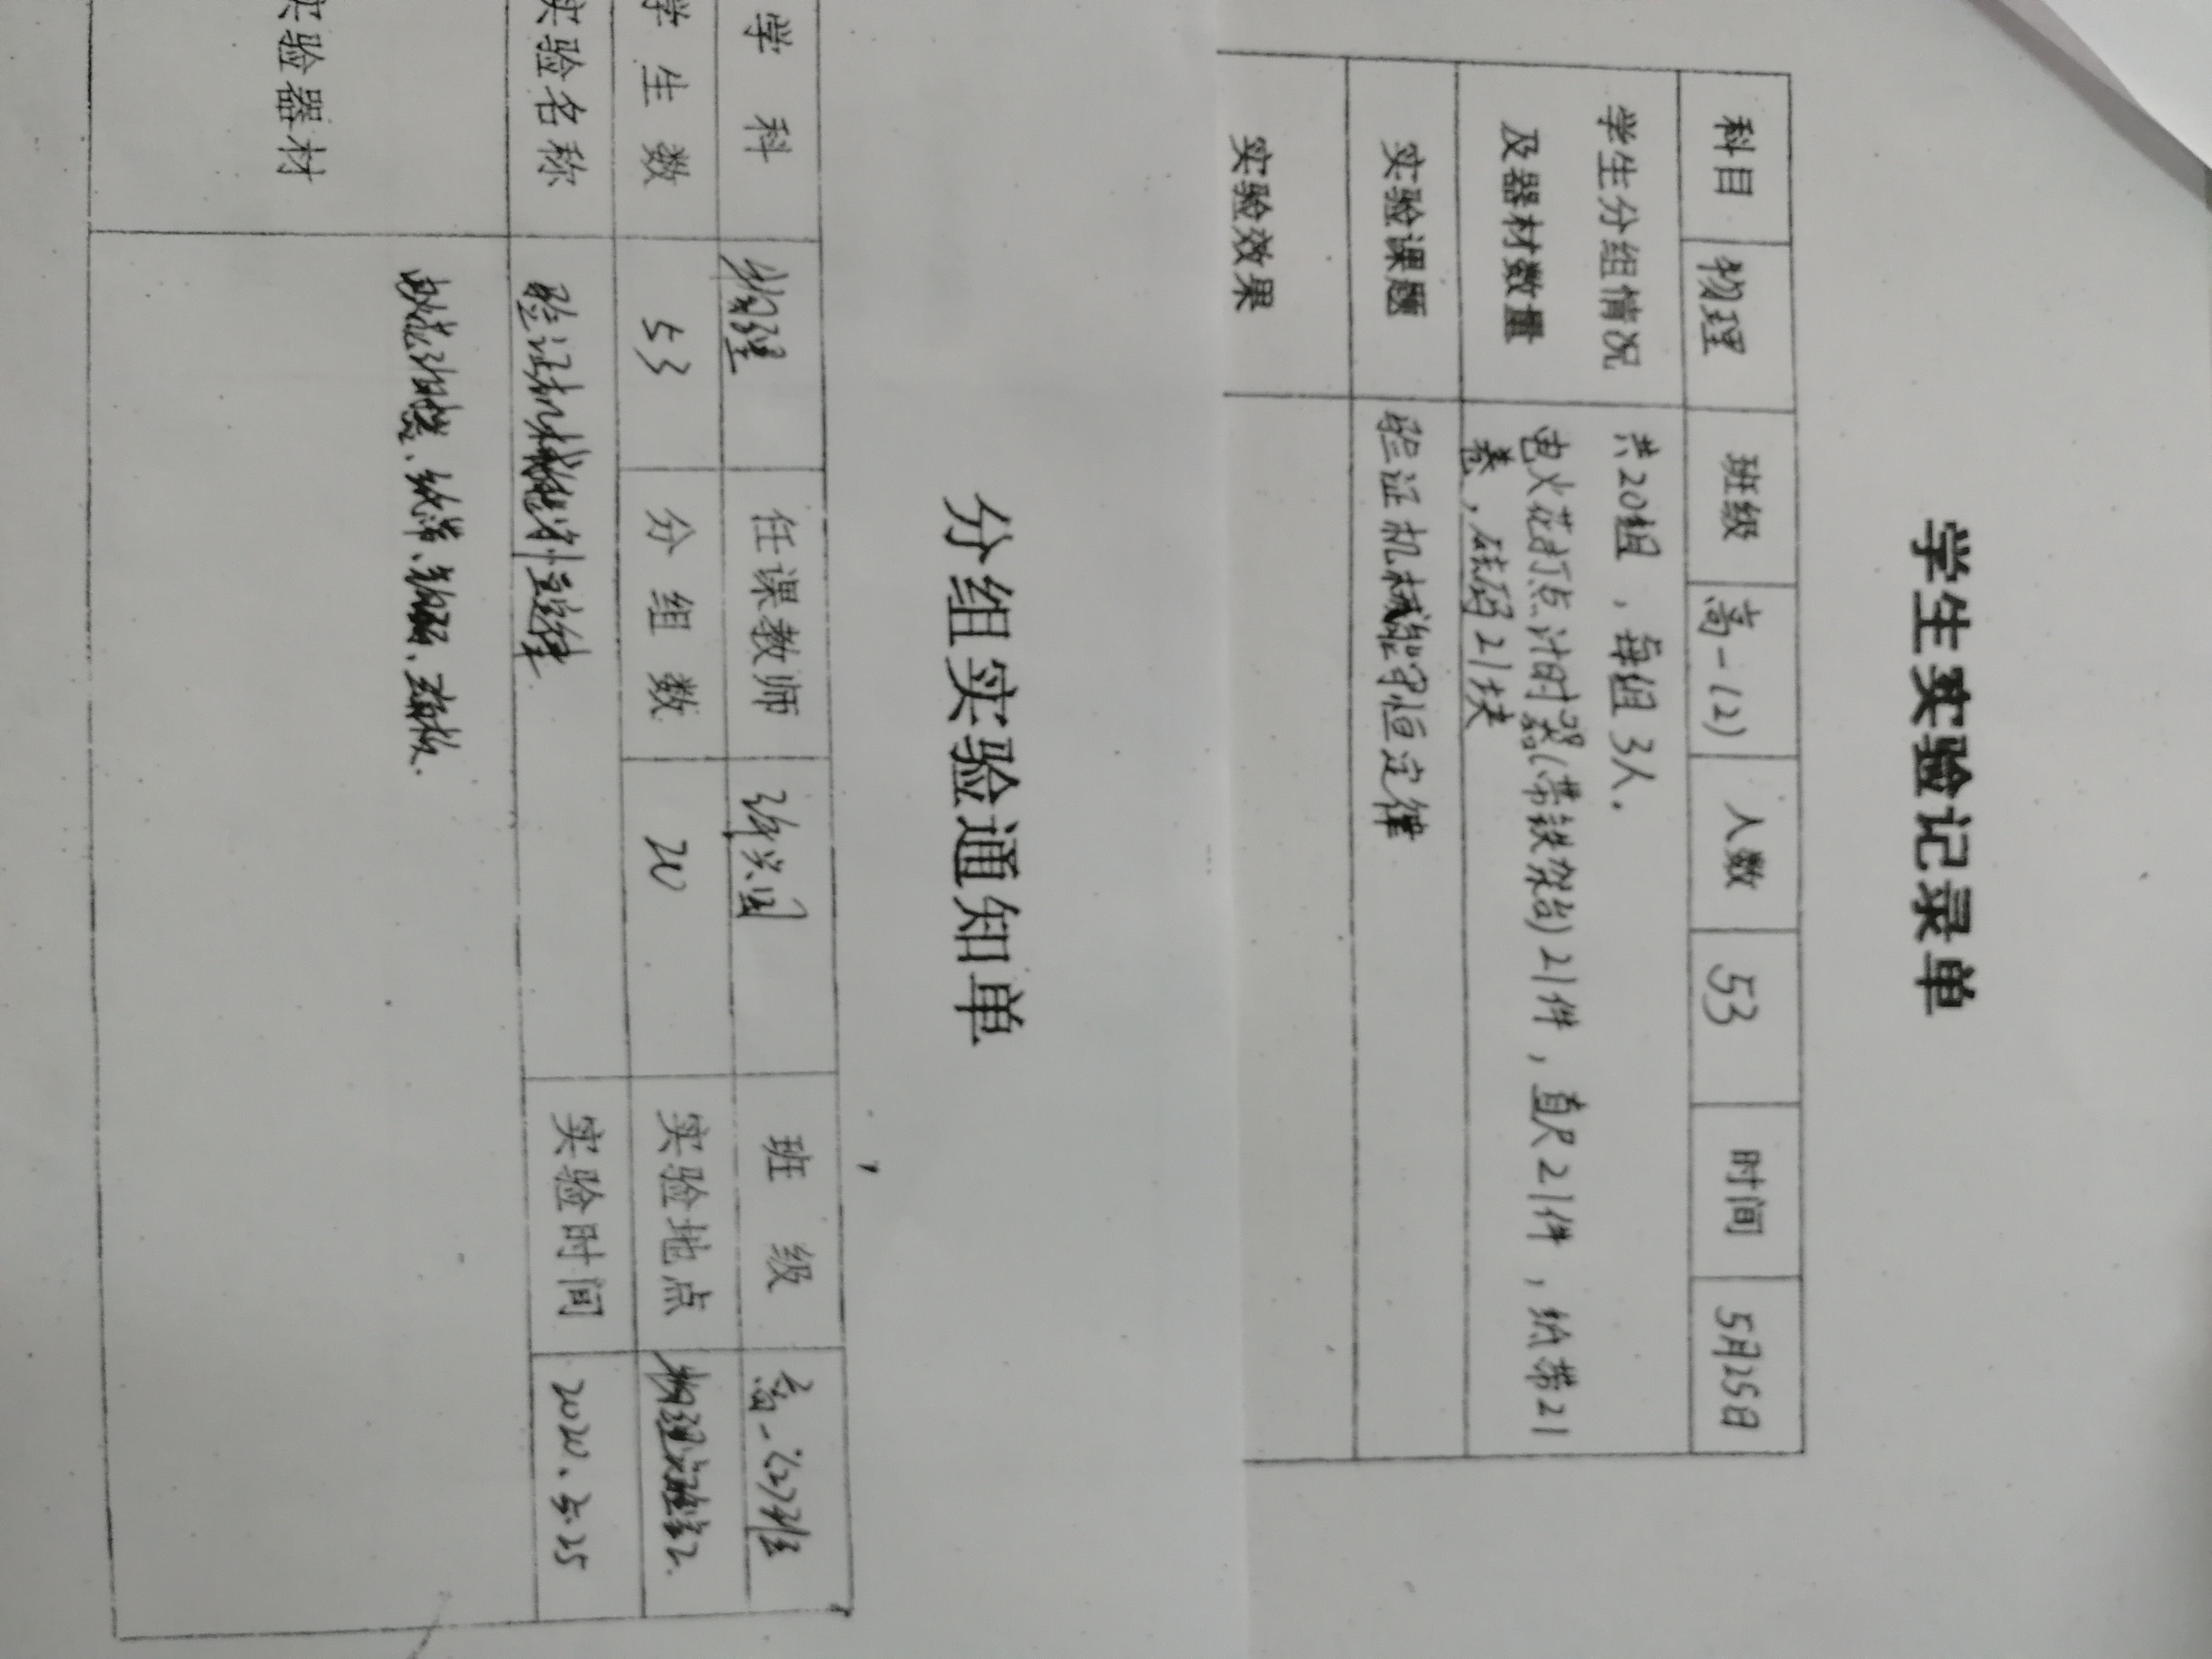 学生实验记录单
科目 物理 班级 高一(2) 人数 53 时间 5月25日
学生分组情况 共20组，每组3人.
及器材数量 电火花打点计时器(带铁架台)21件，直尺21件，纸带21
卷，砝码21块
实验课题 验证机械能守恒定律
实验效果
分组实验通知单
学科 物理 任课教师 许兴国 班级 高一(2)班
学生数 53 分组数 20 实验地点 物理实验室2.
实验名称 验证机械能守恒定律 实验时间 2020.5.25
实验器材 电火花计时器、纸带、